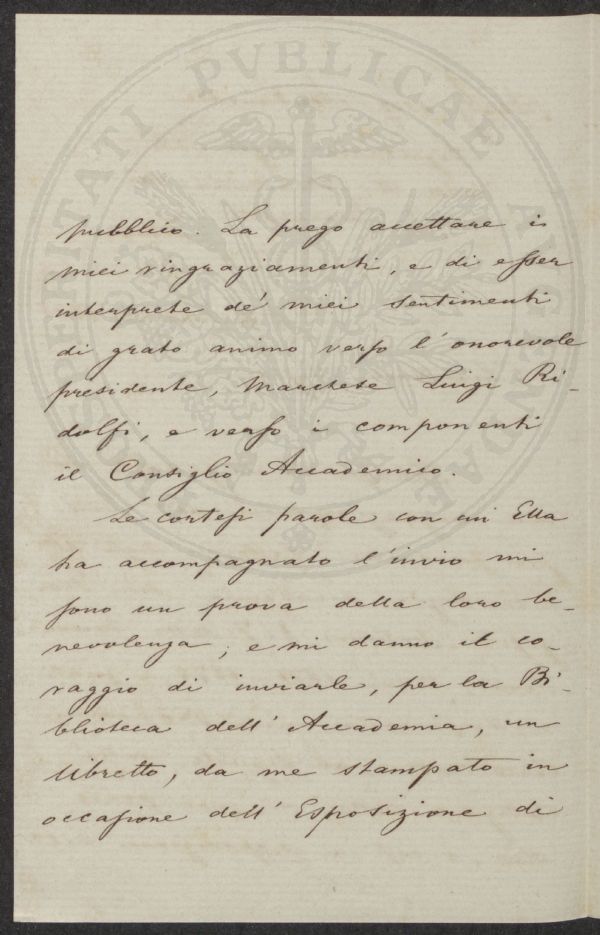 pubblico. La prego accettare i
miei ringraziamenti, e di esser
interprete de' miei sentimenti
di grato animo verso l'onorevole
presidente, Marchese Luigi Ri-
dolfi, e verso i componenti
il Consiglio Accademico.
Le cortesi parole con cui Ella
ha accompagnato l'invio mi
sono un prova della loro be-
nevolenza; e mi danno il co-
raggio di inviarle, per la Bi-
blioteca dell'Accademia, un
libretto, da me stampato in
occasione dell'Esposizione di
PVBLICAE